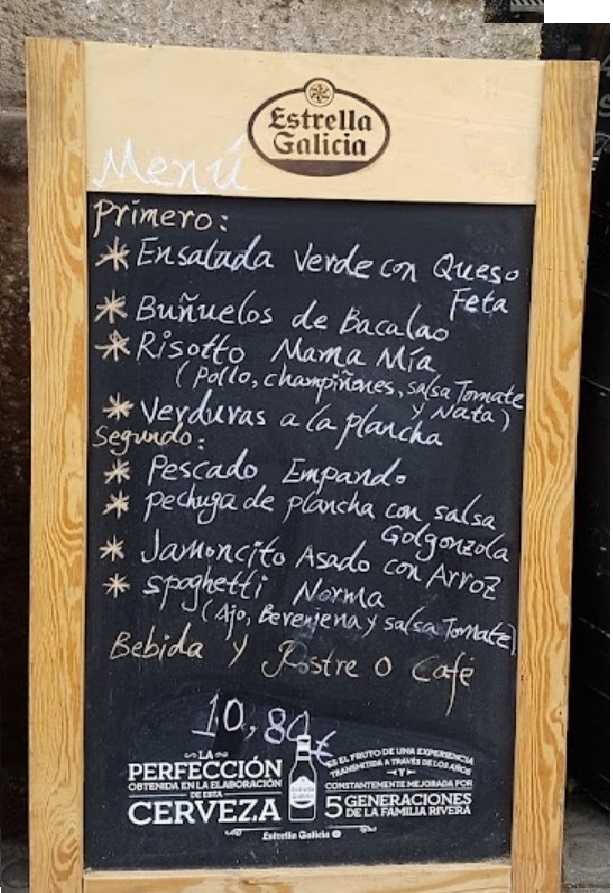 Estrella
Galicia
Menú
Primero:
* Ensalada Verde con Queso
Feta
* Buñuelos de Bacalao
* Risotto Mama Mía
(Pollo, champiñones, salsa Tomate
y Nata)
* Verduras a la plancha
Segundo:
* Pescado Empando
* pechuga de plancha con salsa
Golgonzola
* Jamoncito Asado con Arroz
* spaghetti Norma
(Ajo, Berenjena y salsa Tomate)
Bebida y Postre o Café
10,80€
LA
PERFECCIÓN
OBTENIDA EN LA ELABORACIÓN
DE ESTA
CERVEZA
ES EL FRUTO DE UNA EXPERIENCIA
TRANSMITIDA A TRAVÉS DE LOS AÑOS
Y
CONSTANTEMENTE MEJORADA POR
5 GENERACIONES
DE LA FAMILIA RIVERA
Estrella Galicia